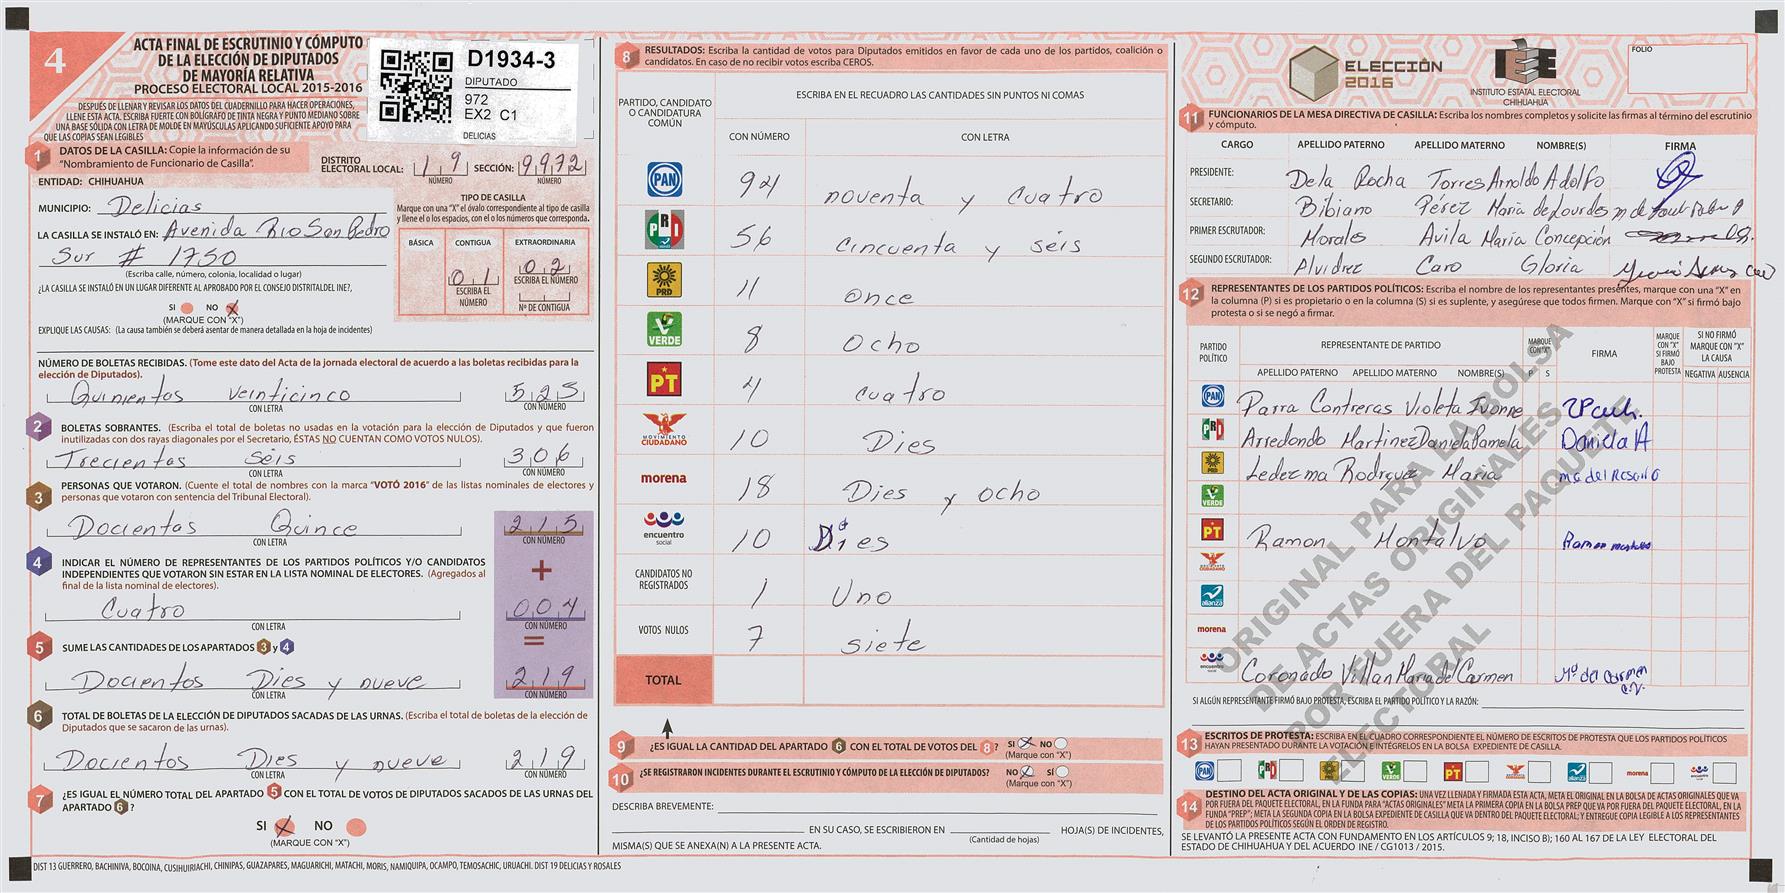 4
ACTA FINAL DE ESCRUTINIO Y CÓMPUTO
DE LA ELECCIÓN DE DIPUTADOS
DE MAYORÍA RELATIVA
PROCESO ELECTORAL LOCAL 2015-2016
DESPUÉS DE LLENAR Y REVISAR LOS DATOS DEL CUADERNILLO PARA HACER OPERACIONES,
LLENE ESTA ACTA. ESCRIBA FUERTE CON BOLÍGRAFO DE TINTA NEGRA Y PUNTO MEDIANO SOBRE
UNA BASE SÓLIDA CON LETRA DE MOLDE EN MAYÚSCULAS APLICANDO SUFICIENTE APOYO PARA
QUE LAS COPIAS SEAN LEGIBLES
D1934-3
DIPUTADO
972
EX2 C1
DELICIAS
1 DATOS DE LA CASILLA: Copie la información de su
"Nombramiento de Funcionario de Casilla".
DISTRITO
ELECTORAL LOCAL: 19 SECCIÓN: 9972
NÚMERO NÚMERO
ENTIDAD: CHIHUAHUA
MUNICIPIO: Delicias
LA CASILLA SE INSTALÓ EN: Avenida Rio San Pedro
Sur # 1750
(Escriba calle, número, colonia, localidad o lugar)
¿LA CASILLA SE INSTALÓ EN UN LUGAR DIFERENTE AL APROBADO POR EL CONSEJO DISTRITAL DEL INE?,
SI NO X
(MARQUE CON "X")
EXPLIQUE LAS CAUSAS: (La causa también se deberá asentar de manera detallada en la hoja de incidentes)
TIPO DE CASILLA
Marque con una "X" el óvalo correspondiente al tipo de casilla
y llene el o los espacios, con el o los números que corresponda.
BÁSICA CONTIGUA EXTRAORDINARIA
01 02
ESCRIBA EL NÚMERO ESCRIBA EL NÚMERO
Nº DE CONTIGUA
NÚMERO DE BOLETAS RECIBIDAS. (Tome este dato del Acta de la jornada electoral de acuerdo a las boletas recibidas para la
elección de Diputados).
Quinientos veinticinco 525
CON LETRA CON NÚMERO
2 BOLETAS SOBRANTES. (Escriba el total de boletas no usadas en la votación para la elección de Diputados y que fueron
inutilizadas con dos rayas diagonales por el Secretario, ÉSTAS NO CUENTAN COMO VOTOS NULOS).
Trecientos séis 306
CON LETRA CON NÚMERO
3 PERSONAS QUE VOTARON. (Cuente el total de nombres con la marca "VOTÓ 2016" de las listas nominales de electores y
personas que votaron con sentencia del Tribunal Electoral).
Docientos Quince 215
CON LETRA CON NÚMERO
+
4 INDICAR EL NÚMERO DE REPRESENTANTES DE LOS PARTIDOS POLÍTICOS Y/O CANDIDATOS
INDEPENDIENTES QUE VOTARON SIN ESTAR EN LA LISTA NOMINAL DE ELECTORES. (Agregados al
final de la lista nominal de electores).
Cuatro 004
CON LETRA CON NÚMERO
=
5 SUME LAS CANTIDADES DE LOS APARTADOS 3 y 4
Docientos Dies y nueve 219
CON LETRA CON NÚMERO
6 TOTAL DE BOLETAS DE LA ELECCIÓN DE DIPUTADOS SACADAS DE LAS URNAS. (Escriba el total de boletas de la elección de
Diputados que se sacaron de las urnas).
Docientos Dies y nueve 219
CON LETRA CON NÚMERO
7 ¿ES IGUAL EL NÚMERO TOTAL DEL APARTADO 5 CON EL TOTAL DE VOTOS DE DIPUTADOS SACADOS DE LAS URNAS DEL
APARTADO 6?
SI X NO
(MARQUE CON "X")
DIST 13 GUERRERO, BACHINIVA, BOCOINA, CUSIHUIRIACHI, CHINIPAS, GUAZAPARES, MAGUARICHI, MATACHI, MORIS, NAMIQUIPA, OCAMPO, TEMOSACHIC, URUACHI. DIST 19 DELICIAS Y ROSALES
8 RESULTADOS: Escriba la cantidad de votos para Diputados emitidos en favor de cada uno de los partidos, coalición o
candidatos. En caso de no recibir votos escriba CEROS.
PARTIDO, CANDIDATO
O CANDIDATURA
COMÚN
ESCRIBA EN EL RECUADRO LAS CANTIDADES SIN PUNTOS NI COMAS
CON NÚMERO CON LETRA
PAN 94 noventa y cuatro
PRI 56 cincuenta y séis
PRD 11 once
VERDE 8 ocho
PT 4 cuatro
MOVIMIENTO CIUDADANO 10 Dies
morena 18 Dies y ocho
encuentro social 10 Dies
CANDIDATOS NO
REGISTRADOS 1 Uno
VOTOS NULOS 7 siete
TOTAL
9 ¿ES IGUAL LA CANTIDAD DEL APARTADO 6 CON EL TOTAL DE VOTOS DEL 8? SI X NO
(Marque con "X")
10 ¿SE REGISTRARON INCIDENTES DURANTE EL ESCRUTINIO Y CÓMPUTO DE LA ELECCIÓN DE DIPUTADOS? NO X SÍ
(Marque con "X")
DESCRIBA BREVEMENTE:
EN SU CASO, SE ESCRIBIERON EN HOJA(S) DE INCIDENTES,
(Cantidad de hojas)
MISMA(S) QUE SE ANEXA(N) A LA PRESENTE ACTA.
ELECCIÓN
2016
IEE
INSTITUTO ESTATAL ELECTORAL
CHIHUAHUA
FOLIO
11 FUNCIONARIOS DE LA MESA DIRECTIVA DE CASILLA: Escriba los nombres completos y solicite las firmas al término del escrutinio
y cómputo.
CARGO APELLIDO PATERNO APELLIDO MATERNO NOMBRE(S) FIRMA
PRESIDENTE: De la Rocha Torres Arnoldo Adolfo
SECRETARIO: Bibiano Pérez Maria de Lourdes
PRIMER ESCRUTADOR: Morales Avila María Concepción
SEGUNDO ESCRUTADOR: Alvidrez Caro Gloria
12 REPRESENTANTES DE LOS PARTIDOS POLÍTICOS: Escriba el nombre de los representantes presentes, marque con una "X" en
la columna (P) si es propietario o en la columna (S) si es suplente, y asegúrese que todos firmen. Marque con "X" si firmó bajo
protesta o si se negó a firmar.
PARTIDO
POLÍTICO
REPRESENTANTE DE PARTIDO
APELLIDO PATERNO APELLIDO MATERNO NOMBRE(S)
MARQUE CON "X"
P S
FIRMA
MARQUE CON "X" SI FIRMÓ BAJO PROTESTA
SI NO FIRMÓ MARQUE CON "X" LA CAUSA
NEGATIVA AUSENCIA
PAN Parra Contreras Violeta Ivonne
PRI Arredondo Martinez Daniela Pamela Daniela A
PRD Ledezma Rodrguez Maria ma del Rosario
VERDE
PT Ramon Montalvo Ramon
alianza
morena
encuentro social Coronado Villan Mara del Carmen Mª del Carmen
C.V.
ORIGINAL PARA LA BOLSA
DE ACTAS ORIGINALES
POR FUERA DEL PAQUETE
ELECTORAL
SI ALGÚN REPRESENTANTE FIRMÓ BAJO PROTESTA, ESCRIBA EL PARTIDO POLÍTICO Y LA RAZÓN:
13 ESCRITOS DE PROTESTA: ESCRIBA EN EL CUADRO CORRESPONDIENTE EL NÚMERO DE ESCRITOS DE PROTESTA QUE LOS PARTIDOS POLÍTICOS
HAYAN PRESENTADO DURANTE LA VOTACIÓN E INTÉGRELOS EN LA BOLSA EXPEDIENTE DE CASILLA.
PAN PRI PRD VERDE PT alianza morena
14 DESTINO DEL ACTA ORIGINAL Y DE LAS COPIAS: UNA VEZ LLENADA Y FIRMADA ESTA ACTA, META EL ORIGINAL EN LA BOLSA DE ACTAS ORIGINALES QUE VA
POR FUERA DEL PAQUETE ELECTORAL, EN LA FUNDA PARA "ACTAS ORIGINALES" META LA PRIMERA COPIA EN LA BOLSA PREP QUE VA POR FUERA DEL PAQUETE ELECTORAL, EN LA
FUNDA "PREP"; META LA SEGUNDA COPIA EN LA BOLSA EXPEDIENTE DE CASILLA QUE VA DENTRO DEL PAQUETE ELECTORAL; Y ENTREGUE COPIA LEGIBLE A LOS REPRESENTANTES
DE LOS PARTIDOS POLÍTICOS SEGÚN EL ORDEN DE REGISTRO.
SE LEVANTÓ LA PRESENTE ACTA CON FUNDAMENTO EN LOS ARTÍCULOS 9; 18, INCISO B); 160 AL 167 DE LA LEY ELECTORAL DEL
ESTADO DE CHIHUAHUA Y DEL ACUERDO INE / CG1013 / 2015.